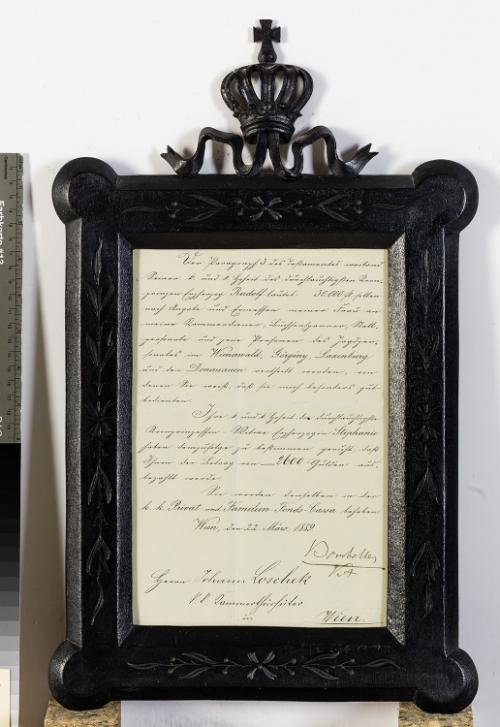 Der Paragraph 3 des Testamentes weiland
Seiner k. und k. Hoheit des durchlauchtigsten Kron-
prinzen Erzherzog Rudolf lautet: 30.000 fl. sollen
nach Angabe und Ermessen meiner Frau an
meine Kammerdiener, Büchsenspanner, Stall-
personale und jene Personen des Jagdper-
sonales im Wienerwald, Görgény, Laxenburg
und den Donauauen vertheilt werden, von
denen Sie weiß, daß sie mich besonders gut
bedienten.
Ihre k. und k. Hoheit die durchlauchtigste
Kronprinzessin-Witwe Erzherzogin Stephanie
haben demzufolge zu bestimmen geruht, daß
Ihnen der Betrag von 2600 Gulden aus-
bezahlt werde.
Sie werden denselben in der
k. k. Privat und Familien Fonds-Cassa beheben
Wien, den 22 März 1889
Bombelles
VA
Herrn Johann Loschek
k. k. Kammerthürhüter
in Wien.